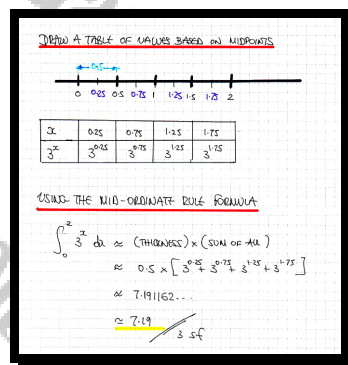 DRAW A TABLE OF VALUES BASED ON MIDPOINTS
0.5
0 0.25 0.5 0.75 1 1.25 1.5 1.75 2
x 0.25 0.75 1.25 1.75
3^x 3^0.25 3^0.75 3^1.25 3^1.75
USING THE MID-ORDINATE RULE FORMULA
∫₀² 3^x dx ≈ (THICKNESS) × (SUM OF ALL)
≈ 0.5 × [3^0.25 + 3^0.75 + 3^1.25 + 3^1.75]
≈ 7.191162...
≈ 7.19
3 sf